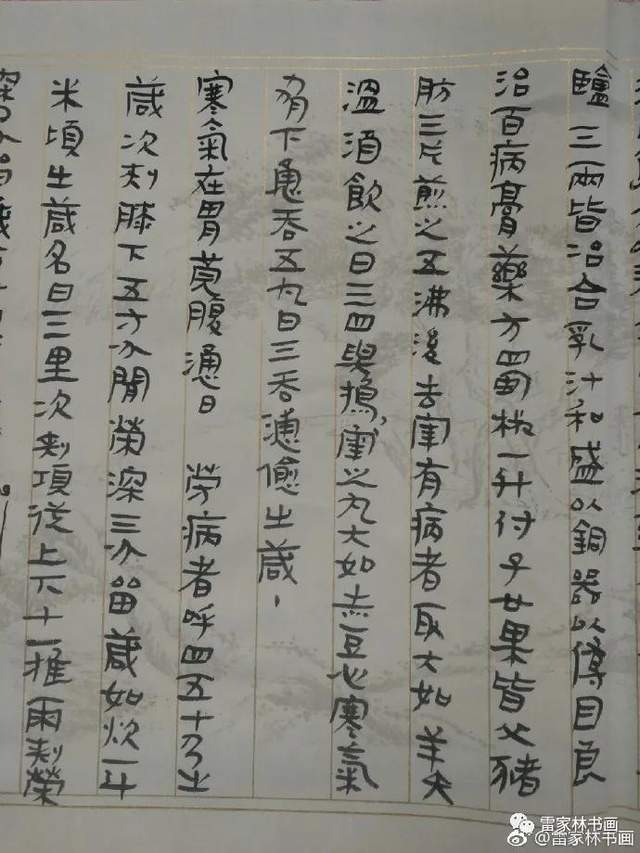 三兩皆冶合乳汁和盛以銅器以傅目良
治百病膏藥方蜀椒一升付子廿果皆父豬
肪三斤煎之五沸浚去宰有病者取大如羊矢
溫酒飲之日三四與搗宰之丸大如赤豆心寒氣
下恿吞五丸日三吞 愈出葴
寒氣在胃莞腹懣日 勞病者呼四五十乃出
葴次刾膝下五寸分閒榮深三分留葴如炊一升
米頃出葴名曰三里次刾項從上下十一椎兩刾榮
雷家林书画
@雷家林书画